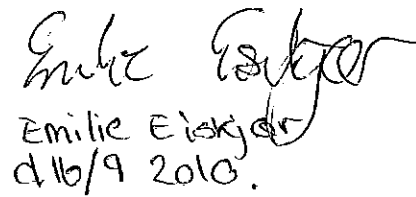 Emilie Eiskjær
Emilie Eiskjær
d 16/9 2010.